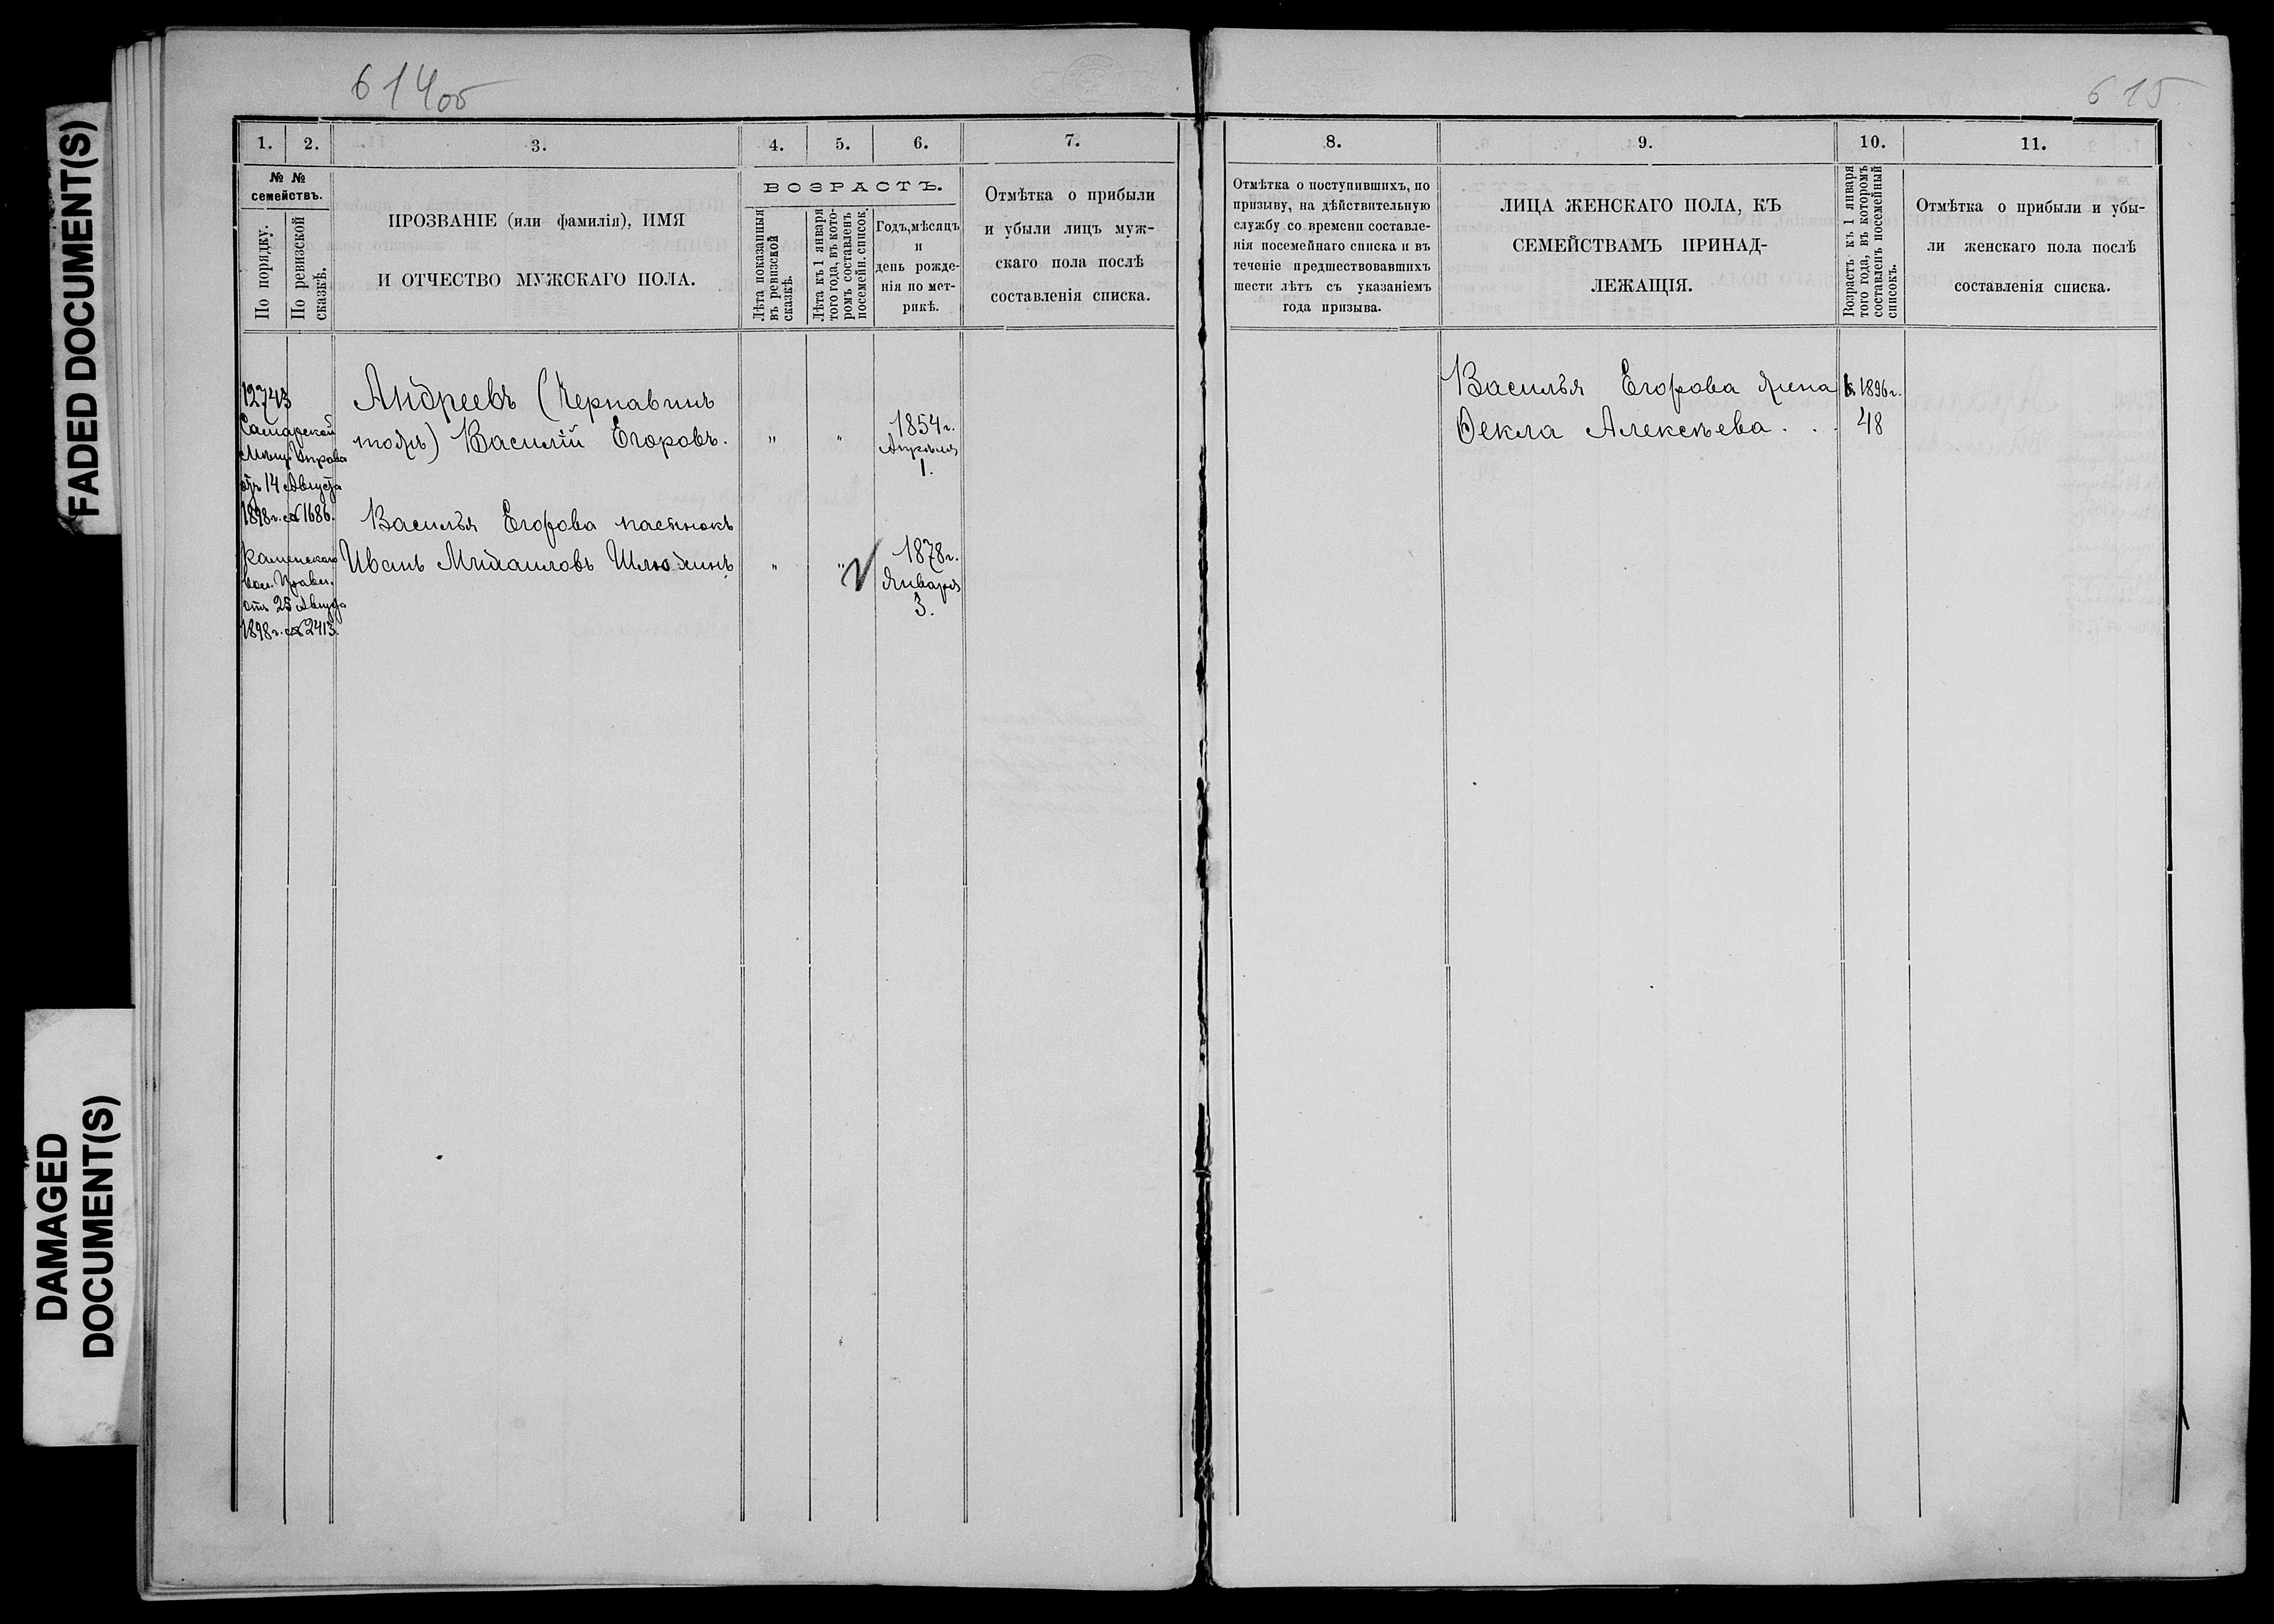 FADED DOCUMENT(S)
DAMAGED
DOCUMENT(S)
614об
1.
2.
3.
4.
5.
6.
7.
№ №
семействъ.
По порядку.
По ревизской
сказкѣ.
ПРОЗВАНІЕ (или фамилія), ИМЯ
И ОТЧЕСТВО МУЖСКАГО ПОЛА.
ВОЗРАСТЪ.
Лѣта показанныя
въ ревизской
сказкѣ.
Лѣта къ 1 января
того года, въ кото-
ромъ составленъ
посемейн. список.
Годъ, мѣсяцъ
и
день рожде-
нія по мет-
рикѣ.
Отмѣтка о прибыли
и убыли лицъ муж-
скаго пола послѣ
составленія списка.
12743
Самарской
Мѣщ. Управы
отъ 14 Августа
1898г. № 1686.
Каменскаго
вол. Правл.
отъ 25 Августа
1898г. № 2413.
Андреевъ (Чернавинъ
тожъ) Василій Егоровъ.
„ „
1854г.
Апрѣля
1.
Василья Егорова пасынокъ
Иванъ Михаиловъ
„ „
1878г.
Января
3.
615
8.
9.
10.
11.
Отмѣтка о поступившихъ, по
призыву, на дѣйствительную
службу со времени составле-
нія посемейнаго списка и въ
теченіе предшествовавшихъ
шести лѣтъ съ указаніемъ
года призыва.
ЛИЦА ЖЕНСКАГО ПОЛА, КЪ
СЕМЕЙСТВАМЪ ПРИНАД-
ЛЕЖАЩІЯ.
Возрастъ къ 1 января
того года, въ которомъ
составленъ посемейный
списокъ.
Отмѣтка о прибыли и убы-
ли женскаго пола послѣ
составленія списка.
Василья Егорова жена
Ѳекла Алексѣева . . .
1896г.
48